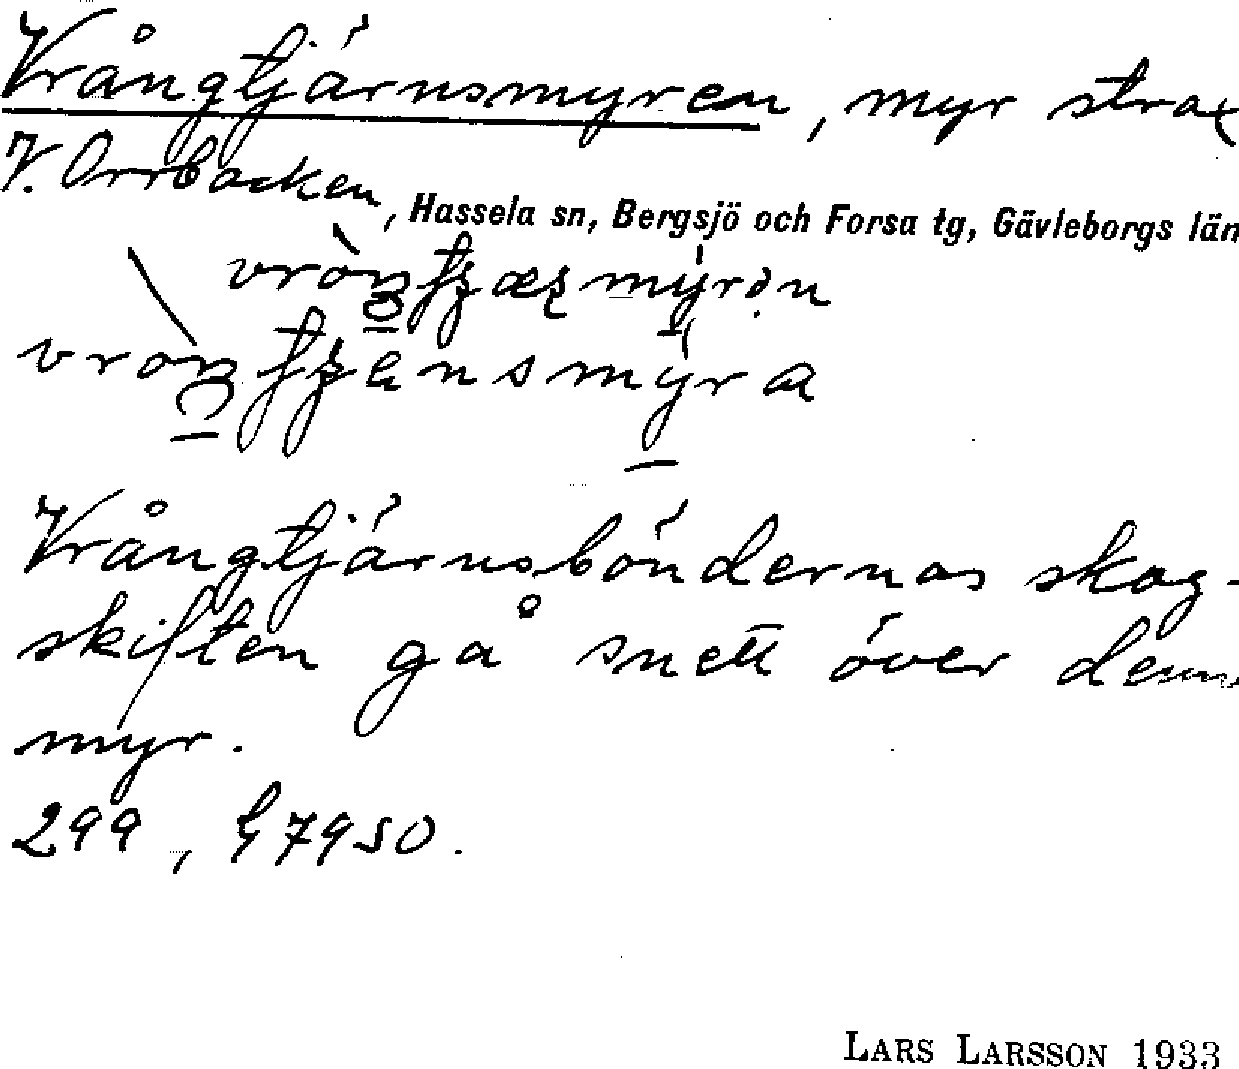 Vrångtjärnsmyren, myr strax
V. Orrbacken, Hassela sn, Bergsjö och Forsa tg, Gävleborgs län
Vrångtjärnsböndernas skog-
skiften gå snett över denna
myr.
299, 7950.
LARS LARSSON 1933